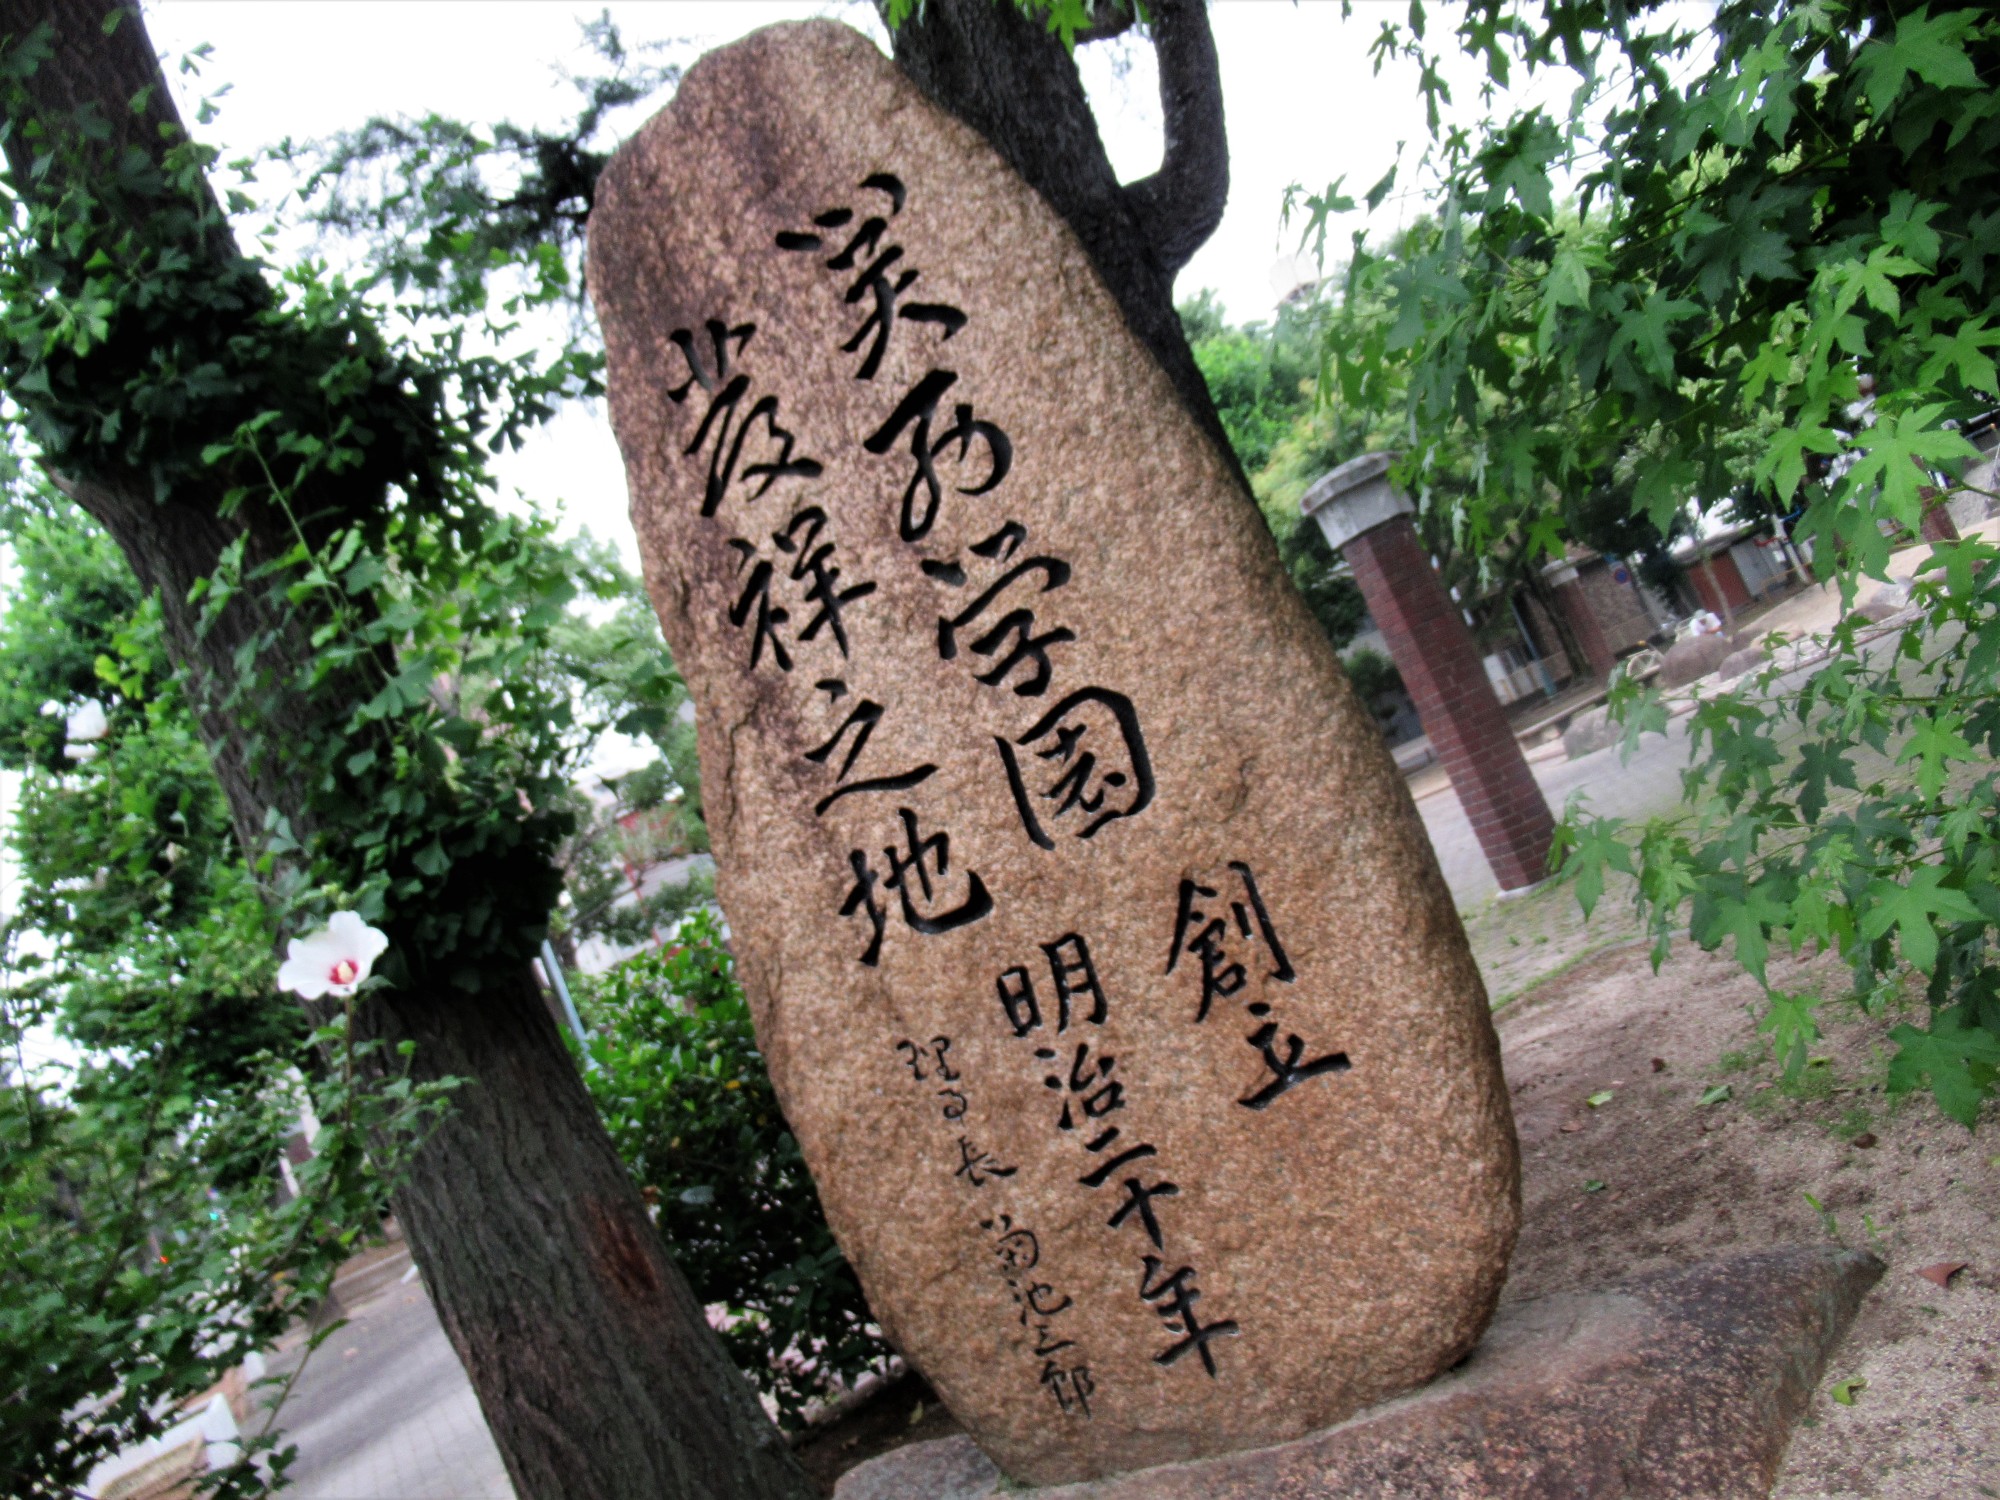 関西学園
發祥之地
創立
明治二十年
理事長 菊池三郎